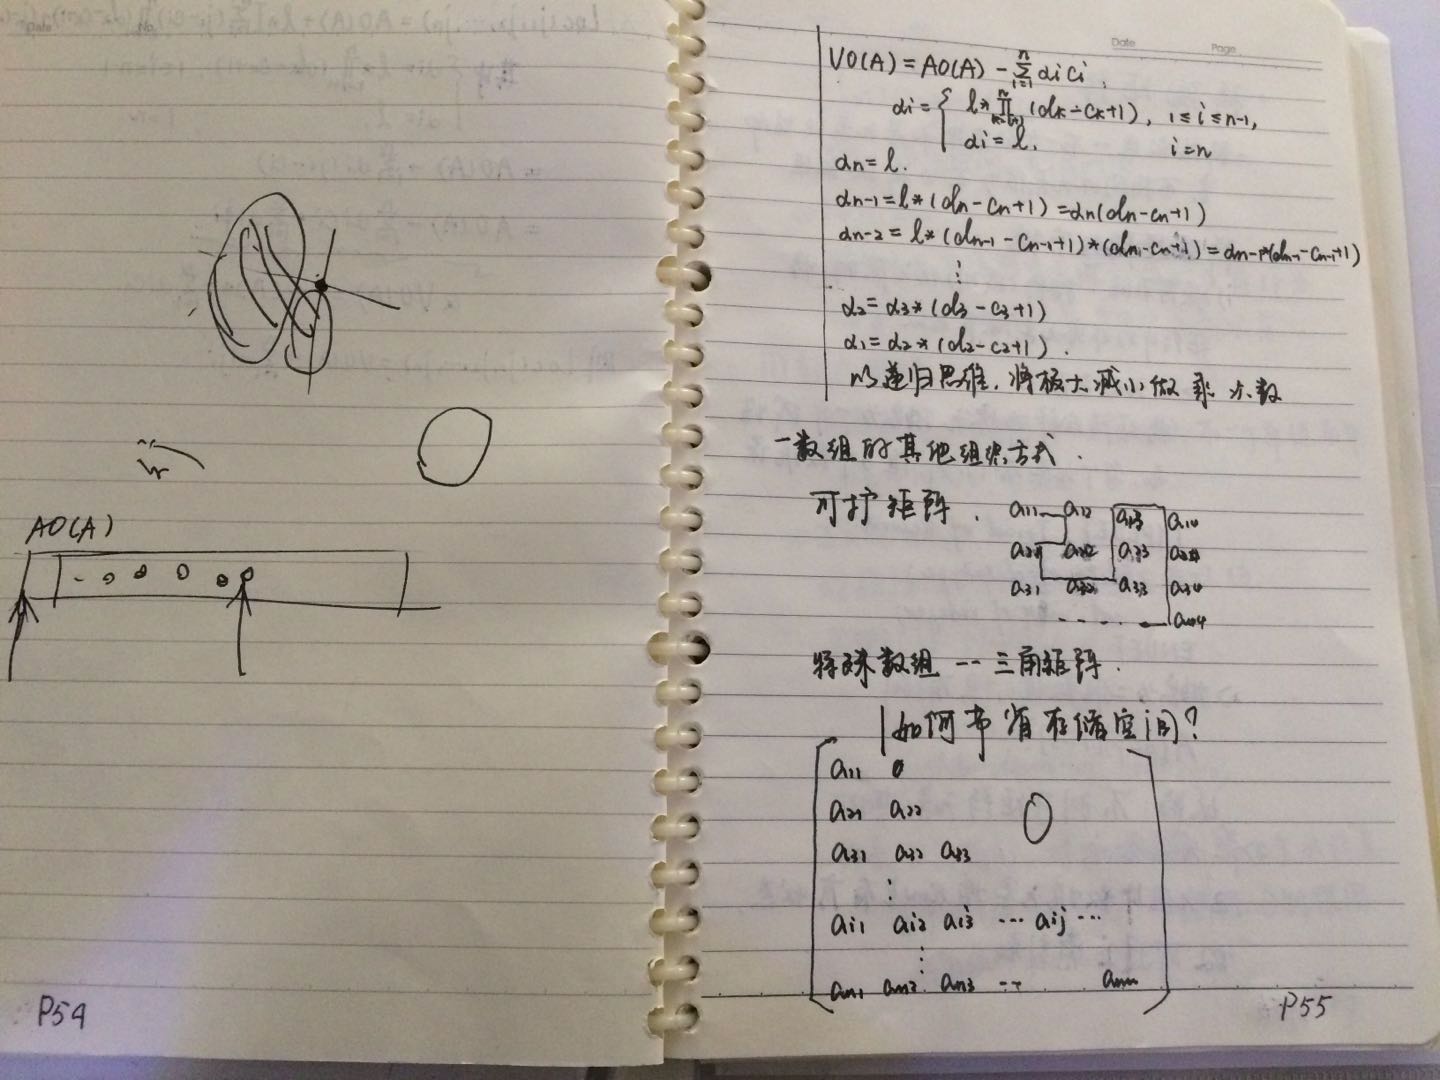 AO(A)
P54
Date Page
VO(A) = AO(A) - \sum_{i=1}^{n} αi ci,
αi = { l * ∏ (dk - ck+1), 1 ≤ i ≤ n-1,
αi = l, i = n
αn = l.
αn-1 = l * (dn - cn+1) = αn(dn - cn+1)
αn-2 = l * (dn-1 - cn-1+1) * (dn - cn+1) = αn-1*(dn-1 - cn-1+1)
⋮
α2 = α3 * (d3 - c3+1)
α1 = α2 * (d2 - c2+1).
以递归思维,将极大减小做乘次数
一数组的其他组织方式.
可扩矩阵. a11 a12 a13 a14
a21 a22 a23 a24
a31 a32 a33 a34
- - - - a44
特殊数组 -- 三角矩阵.
如何节省存储空间?
a11 0
a21 a22 0
a31 a32 a33
⋮
ai1 ai2 ai3 ... aij ...
⋮
an1 an2 an3 -- ann
P55